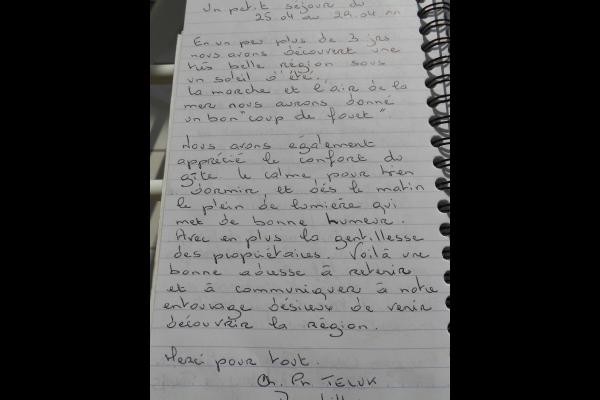 Un petit séjour du
25.04 au 29.04
En un peu plus de 3 jrs
nous avons découvert une
très belle région sous
un soleil d'été.
La marche et l'air de la
mer nous aurons donné
un bon "coup de fouet"
Nous avons également
apprécié le confort du
gîte le calme pour bien
dormir, et dès le matin
le plein de lumière qui
met de bonne humeur.
Avec en plus la gentillesse
des propriétaires. Voilà une
bonne adresse à retenir
et à communiquer à notre
entourage désireux de venir
découvrir la région.
Merci pour tout.
Ch. Ph TELUK